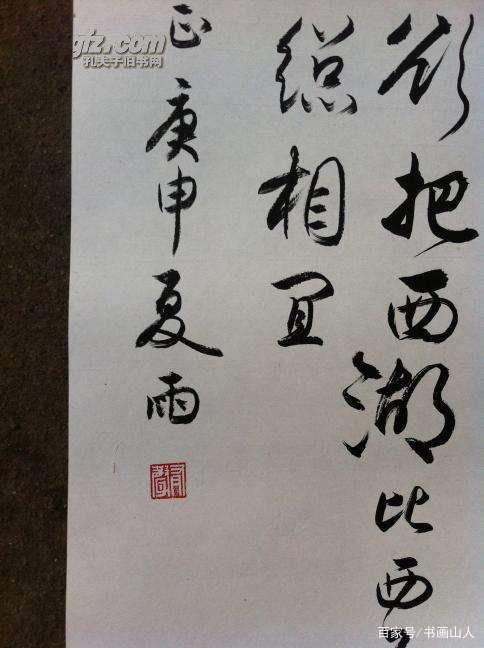 欲把西湖比西
總相宜
正 庚申夏雨
gjz.com
孔夫子旧书网
百家号/书画山人